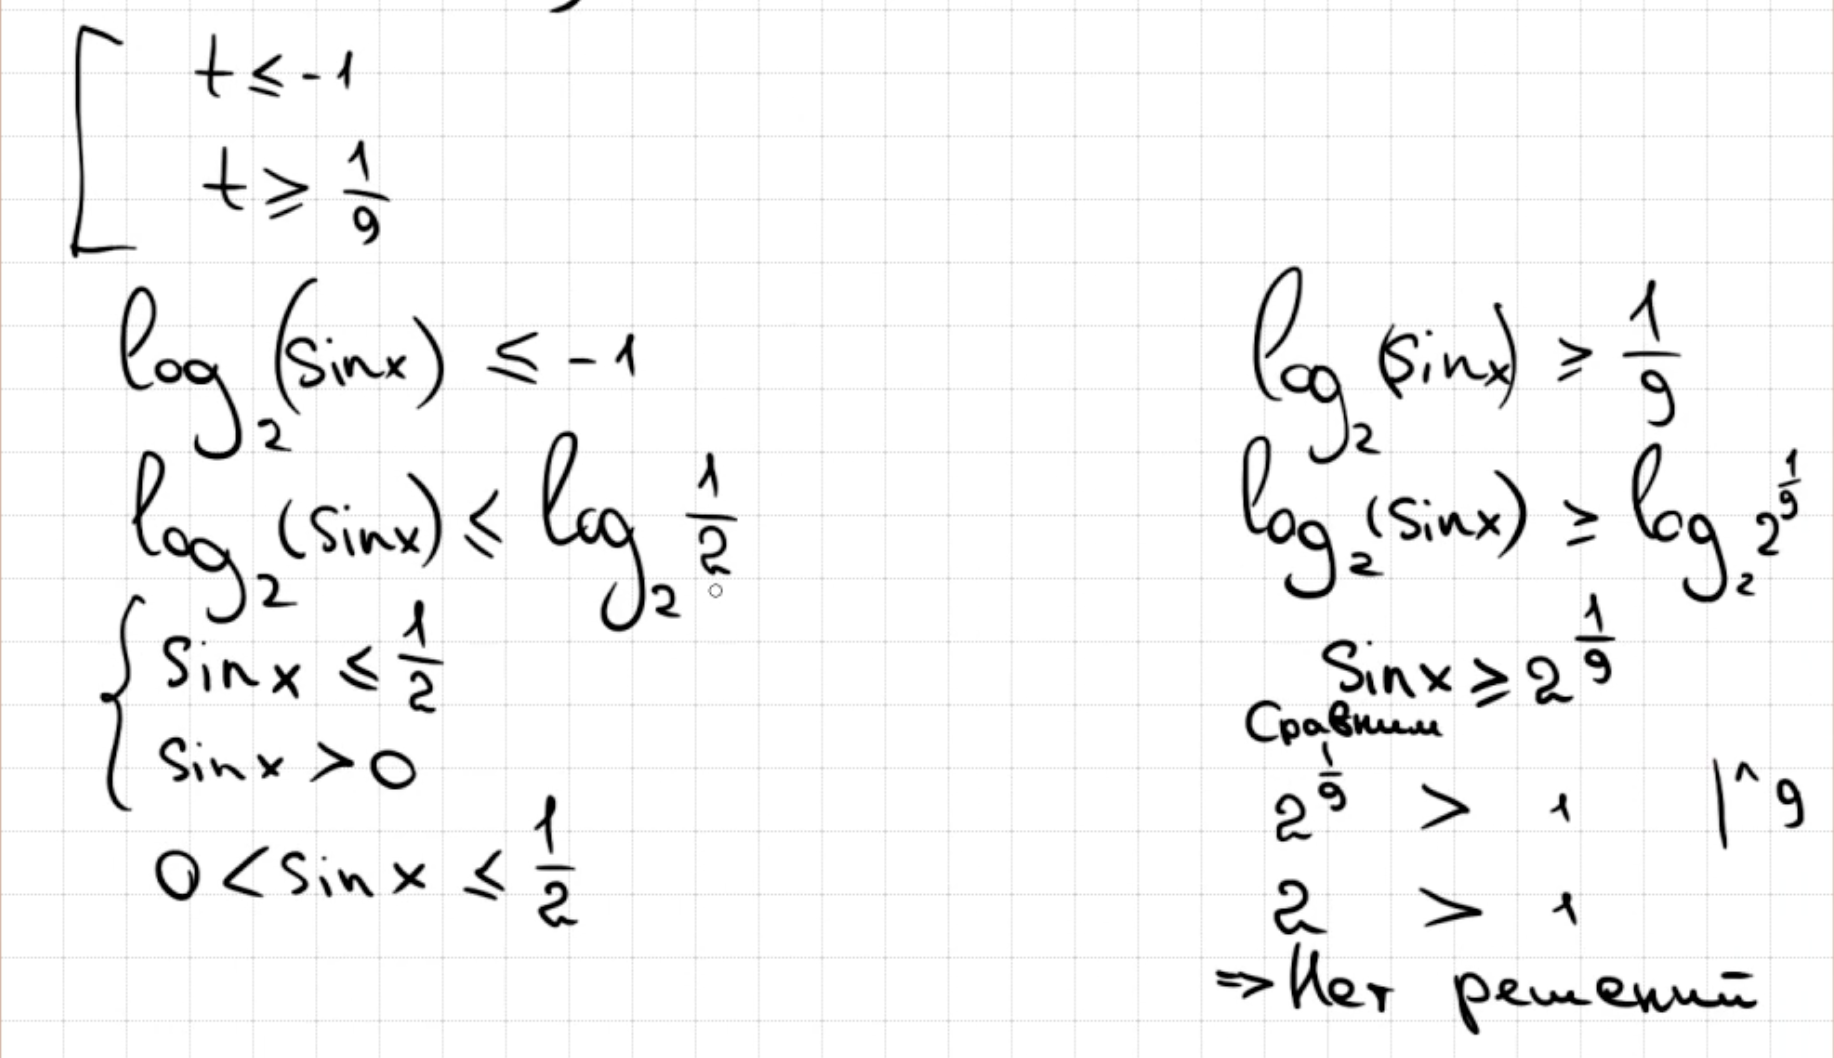 t ≤ -1
t ≥ 1/9
log₂(sinx) ≤ -1
log₂(sinx) ≤ log₂ 1/2
sinx ≤ 1/2
sinx > 0
0 < sinx ≤ 1/2
log₂(sinx) ≥ 1/9
log₂(sinx) ≥ log₂ 2^(1/9)
sinx ≥ 2^(1/9)
Сравним
2^(1/9) > 1 |^9
2 > 1
⇒ Нет решений